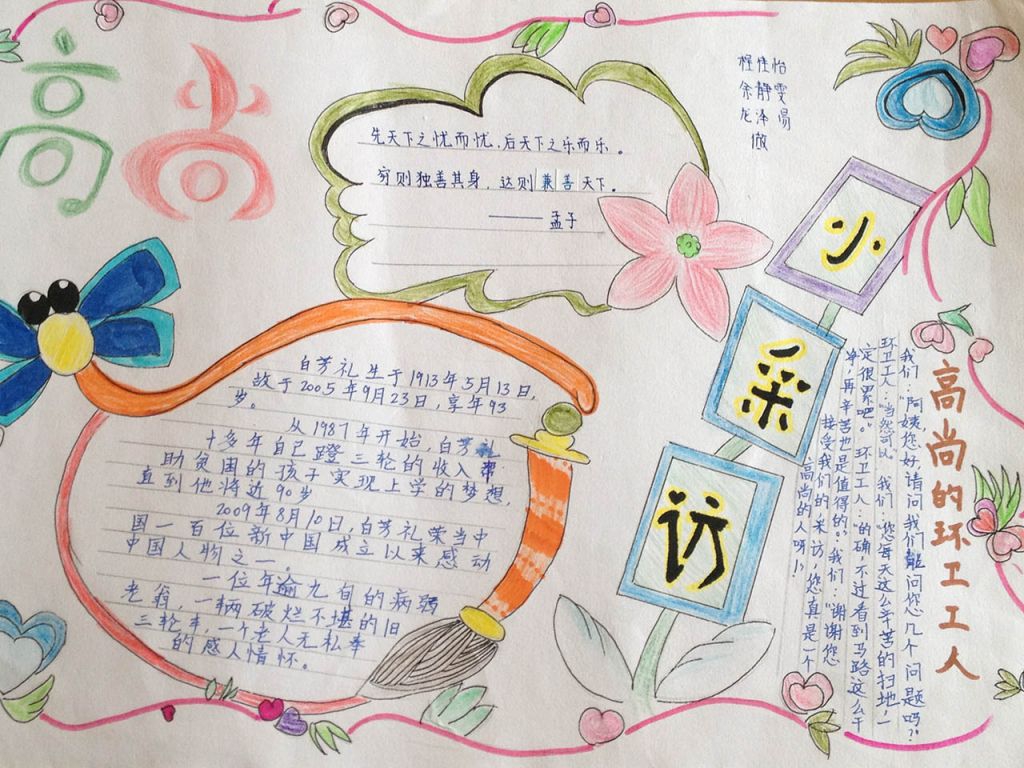 高尚
先天下之忧而忧,后天下之乐而乐。
穷则独善其身,达则兼善天下。
——孟子
程佳怡
余静雯
龙泽
做
小采访
白芳礼生于1913年5月13日,
故于2005年9月23日,享年93
岁。
从1987年开始,白芳礼
十多年自己蹬三轮的收入
助贫困的孩子实现上学的梦想,
直到他将近90岁
2009年8月10日,白芳礼荣当中
国一百位新中国成立以来感动
中国人物之一。
一位年逾九旬的病弱
老翁,一辆破烂不堪的旧
三轮车,一个老人无私奉
的感人情怀。
高尚的环卫工人
我们:“阿姨您好,请问我们能问您几个问题吗?”
环卫工人:“当然可以。”我们:“您每天这么辛苦的扫地,一
定很累吧。”环卫工人:“的确,不过看到马路这么干
净,再辛苦也是值得的。”我们:“谢谢您
接受我们的采访,您真是一个
高尚的人呀!”